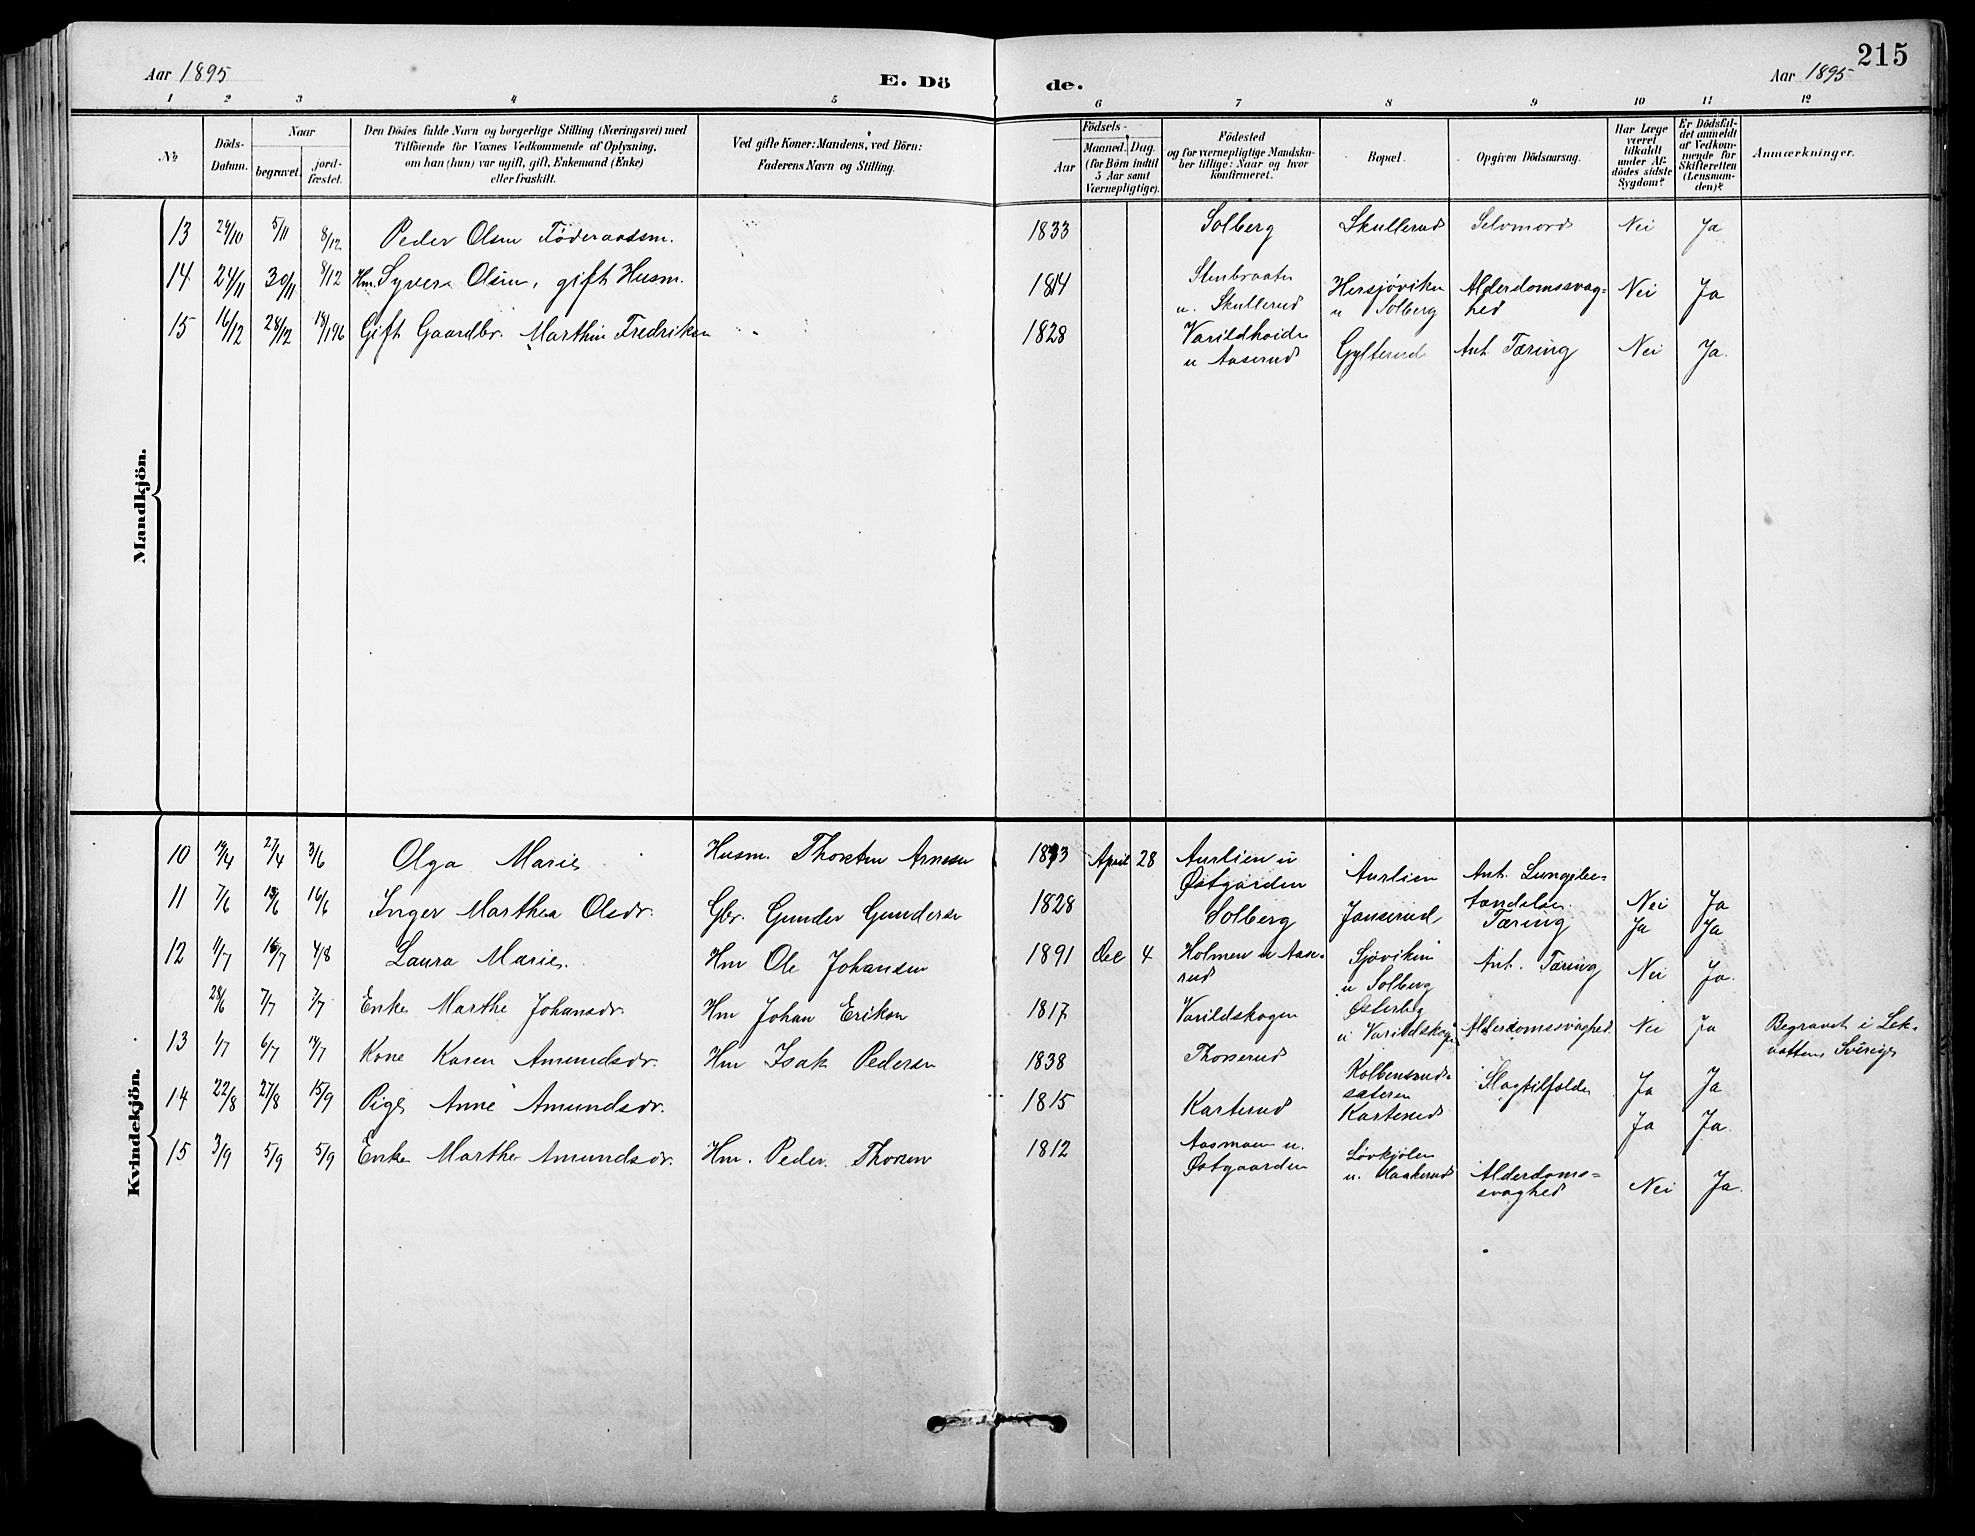 215
Aar 1895
E. Dö de.
Aar 1895
1 2 3 4 5 6 7 8 9 10 11 12
No
Döds-Datum.
Naar
begravet.
jord-fæstet.
Den Dödes fulde Navn og borgerlige Stilling (Næringsvei) med
Tilföiende for Voxnes Vedkommende af Oplysning,
om han (hun) var ugift, gift, Enkemand (Enke)
eller fraskilt.
Ved gifte Koner: Mandens, ved Börn:
Faderens Navn og Stilling.
Födsels-
Aar
Maaned. Dag.
(for Börn indtil
5 Aar samt
Værnepligtige).
Födested
og for værnepligtige Mandsku-
ber tillige: Naar og hvor
konfirmeret.
Bopæl.
Opgiven Dödsaarsag.
Har Læge
været
tilkaldt
under Af-
dödes sidste
Sygdom?
Er Dödsfal-
det anmeldt
af Vedkom-
mende for
Skifteretten
(Lensman-
den)?
Anmærkninger.
Mandkjön.
13 24/10 5/11 8/12 Peder Olsen Föderaadsm. 1833 Solberg Skullerud Selvmord Nei Ja
14 24/11 30/11 8/12 Hm. Syver Olsen, gift Husm. 1814 Stenbraaten u. Skullerud Hersjöviken u Solberg Alderdomssvag=hed Nei Ja
15 16/12 28/12 18/1 96 Gift Gaardbr. Marthin Fredriksen 1828 Varildheide u Aaserud Gylterud Ant Tæring Nei Ja.
Kvindekjön.
10 27/4 3/6 Olga Marie Husm. Thorsten Arnesen April 28 Aurlien u Østgarden Aurlien Ant. Lungebe=tændelse. Nei Ja
11 7/6 16/6 Inger Marthea Olsdr. Gbr. Gunder Gundersen 1828 Solberg Jonserud Tæring Ja Ja
12 1/7 4/8 Laura Marie. Hm Ole Johansen 1891 Dec 4 Holmen u Aase=rud Sjöviken u Solberg Ant. Tæring Nei Ja.
28/6 7/7 7/7 Enke Marthe Johansdr. Hm Johan Eriksen 1817 Varildskogen Østerbeg u Varildskogen Alderdomssvaghed Nei Ja Begravet i Lek=vattens Sverige
13 1/7 6/7 Kone Karen Amundsdr. Hm Isak Pedersen 1838 Thonerud Kolbensrud=sæteren Slagtilfælde Ja Ja
14 22/8 27/8 15/9 Pige Anne Amundsdr. 1815 Karterud Karterud Ja Ja.
15 3/9 5/9 5/9 Enke Marthe Amundsdr. Hm. Peder Thorsen 1812 Aasmoen u. Østgaarden Lövkjölen u. Haakerud Alderdoms=svaghed Nei Ja.